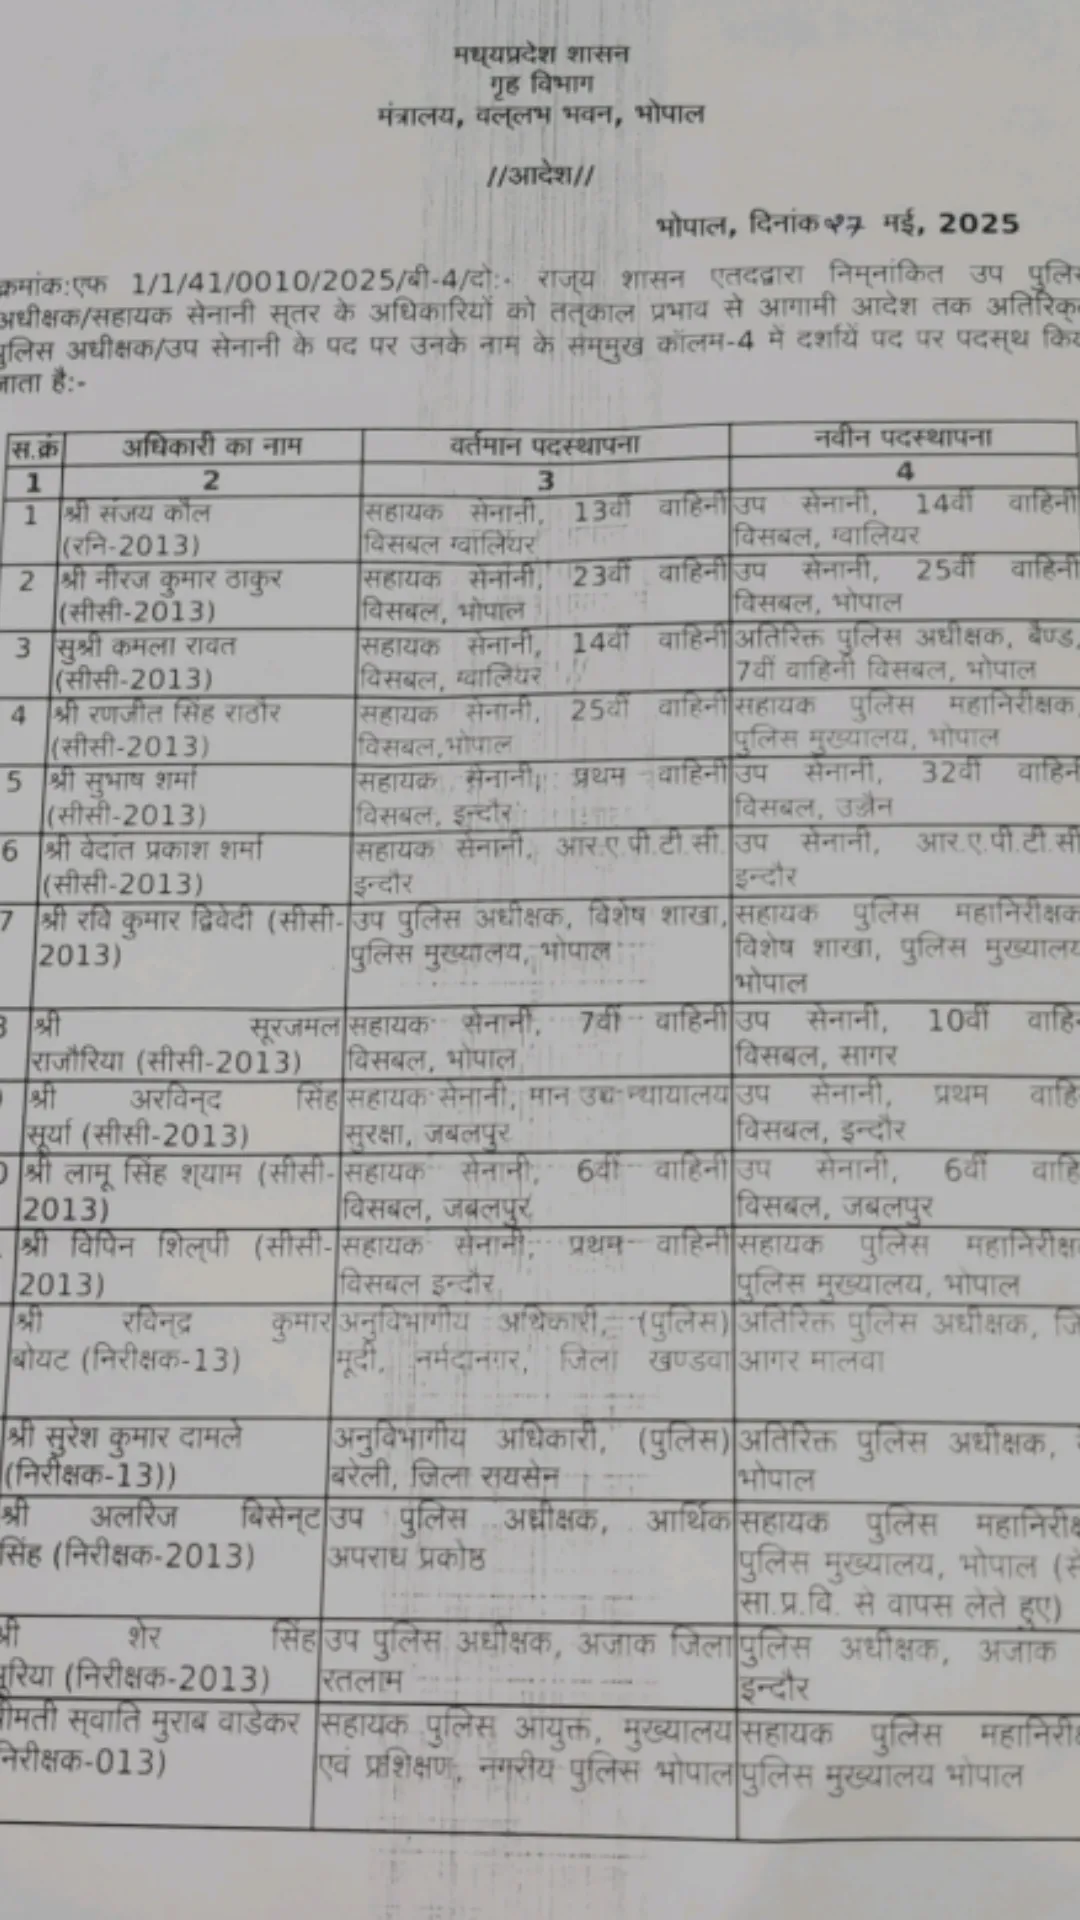 मध्यप्रदेश शासन
गृह विभाग
मंत्रालय, वल्लभ भवन, भोपाल
//आदेश//
भोपाल, दिनांक २७ मई, 2025
क्रमांक:एफ 1/1/41/0010/2025/बी-4/दो:- राज्य शासन एतदद्वारा निम्नांकित उप पुलिस
अधीक्षक/सहायक सेनानी स्तर के अधिकारियों को तत्काल प्रभाव से आगामी आदेश तक अतिरिक्
पुलिस अधीक्षक/उप सेनानी के पद पर उनके नाम के सम्मुख कॉलम-4 में दर्शाये पद पर पदस्थ किय
जाता है:-
स.क्रं अधिकारी का नाम वर्तमान पदस्थापना नवीन पदस्थापना
1 2 3 4
1 श्री संजय कौल सहायक सेनानी, 13वीं वाहिनी उप सेनानी, 14वीं वाहिनी
(रनि-2013) विसबल ग्वालियर विसबल, ग्वालियर
2 श्री नीरज कुमार ठाकुर सहायक सेनानी, 23वीं वाहिनी उप सेनानी, 25वीं वाहिनी
(सीसी-2013) विसबल, भोपाल विसबल, भोपाल
3 सुश्री कमला रावत सहायक सेनानी, 14वीं वाहिनी अतिरिक्त पुलिस अधीक्षक, बैण्ड,
(सीसी-2013) विसबल, ग्वालियर 7वीं वाहिनी विसबल, भोपाल
4 श्री रणजीत सिंह राठौर सहायक सेनानी, 25वीं वाहिनी सहायक पुलिस महानिरीक्षक,
(सीसी-2013) विसबल,भोपाल पुलिस मुख्यालय, भोपाल
5 श्री सुभाष शर्मा सहायक सेनानी, प्रथम वाहिनी उप सेनानी, 32वीं वाहिन
(सीसी-2013) विसबल, इन्दौर विसबल, उज्जैन
6 श्री वेदांत प्रकाश शर्मा सहायक सेनानी, आर.ए.पी.टी.सी. उप सेनानी, आर.ए.पी.टी.सी
(सीसी-2013) इन्दौर इन्दौर
7 श्री रवि कुमार द्विवेदी (सीसी- उप पुलिस अधीक्षक, विशेष शाखा, सहायक पुलिस महानिरीक्षक
2013) पुलिस मुख्यालय, भोपाल विशेष शाखा, पुलिस मुख्यालय
भोपाल
श्री सूरजमल सहायक सेनानी, 7वीं वाहिनी उप सेनानी, 10वीं वाहि
राजौरिया (सीसी-2013) विसबल, भोपाल विसबल, सागर
श्री अरविन्द सिंह सहायक सेनानी, मान उच न्यायालय उप सेनानी, प्रथम वाहि
सूर्या (सीसी-2013) सुरक्षा, जबलपुर विसबल, इन्दौर
0 श्री लामू सिंह श्याम (सीसी- सहायक सेनानी, 6वीं वाहिनी उप सेनानी, 6वीं वाहि
2013) विसबल, जबलपुर विसबल, जबलपुर
श्री विपिन शिल्पी (सीसी- सहायक सेनानी, प्रथम वाहिनी सहायक पुलिस महानिरीक्ष
2013) विसबल इन्दौर पुलिस मुख्यालय, भोपाल
श्री रविन्द्र कुमार अनुविभागीय अधिकारी, (पुलिस) अतिरिक्त पुलिस अधीक्षक, जि
बोयट (निरीक्षक-13) मूदी, नर्मदानगर, जिला खण्डवा आगर मालवा
श्री सुरेश कुमार दामले अनुविभागीय अधिकारी, (पुलिस) अतिरिक्त पुलिस अधीक्षक,
(निरीक्षक-13)) बरेली, जिला रायसेन भोपाल
श्री अलरिज बिसेन्ट उप पुलिस अधीक्षक, आर्थिक सहायक पुलिस महानिरीक्ष
सिंह (निरीक्षक-2013) अपराध प्रकोष्ठ पुलिस मुख्यालय, भोपाल (से
सा.प्र.वि. से वापस लेते हुए)
श्री शेर सिंह उप पुलिस अधीक्षक, अजाक जिला पुलिस अधीक्षक, अजाक
रिया (निरीक्षक-2013) रतलाम इन्दौर
ीमती स्वाति मुराब वाडेकर सहायक पुलिस आयुक्त, मुख्यालय सहायक पुलिस महानिरीक्ष
निरीक्षक-013) एवं प्रशिक्षण, नगरीय पुलिस भोपाल पुलिस मुख्यालय भोपाल